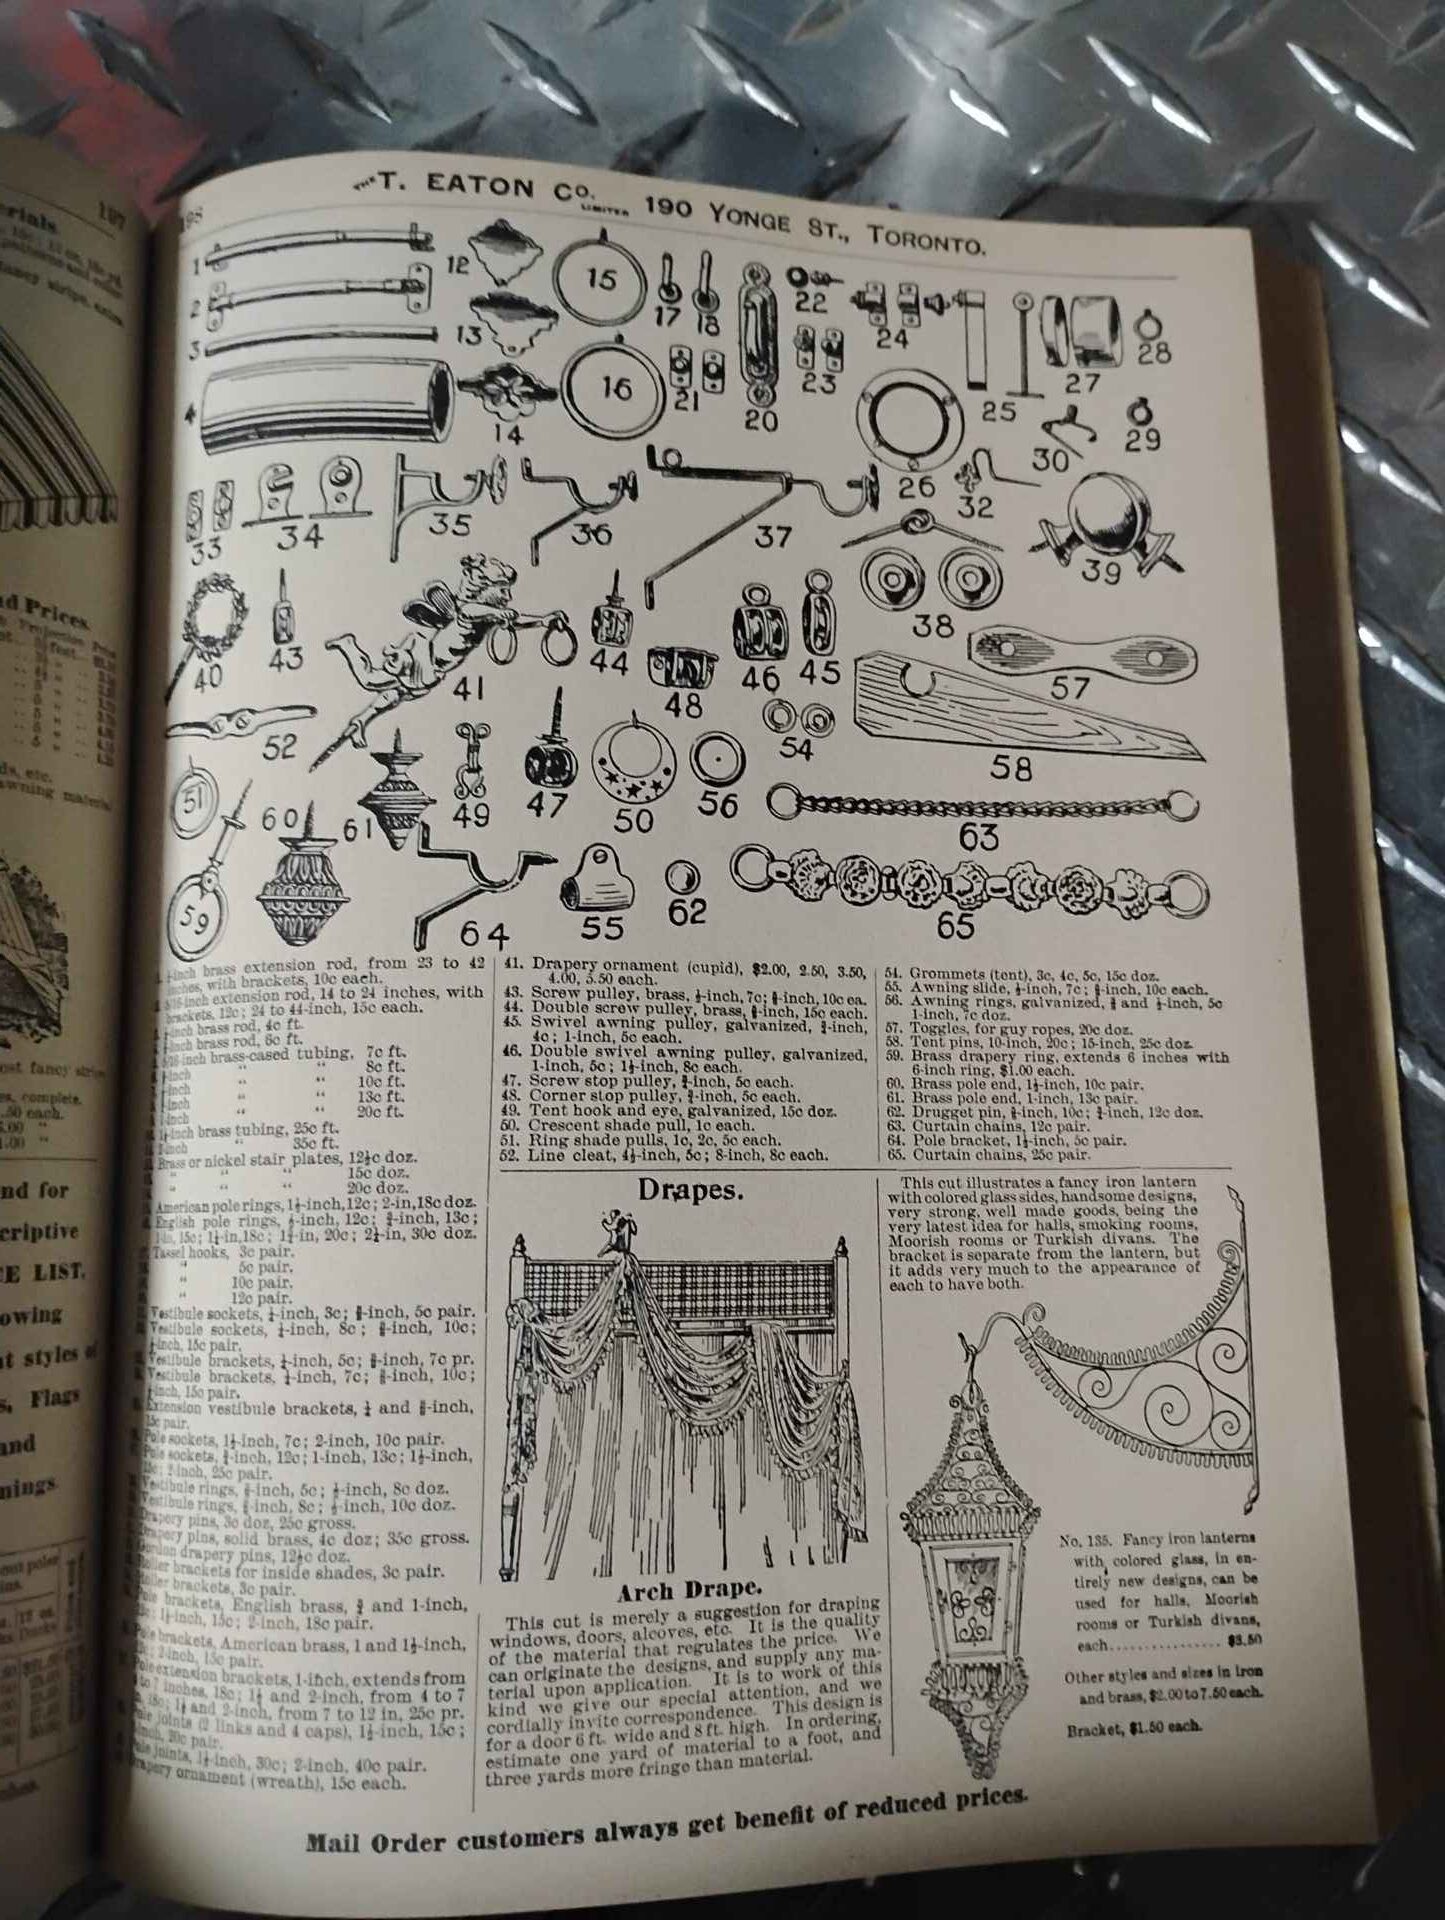 THE T. EATON CO. LIMITED 190 YONGE ST., TORONTO.
198
1
2
3
4
12
13
14
15
16
17
18
20
21
22
23
24
25
26
27
28
29
30
32
33
34
35
36
37
38
39
40
41
43
44
45
46
47
48
49
50
51
52
54
55
56
57
58
59
60
61
62
63
64
65
-inch brass extension rod, from 23 to 42
inches, with brackets, 10c each.
5/16-inch extension rod, 14 to 24 inches, with
brackets, 12c; 24 to 44-inch, 15c each.
-inch brass rod, 4c ft.
-inch brass rod, 6c ft.
-inch brass-cased tubing, 7c ft.
-inch " " 8c ft.
-inch " " 10c ft.
-inch " " 13c ft.
-inch " " 20c ft.
1½-inch brass tubing, 25c ft.
-inch " 35c ft.
Brass or nickel stair plates, 12½c doz.
" " " 15c doz.
" " " 20c doz.
American pole rings, 1½-inch, 12c; 2-in, 18c doz.
English pole rings, ½-inch, 12c; ¾-inch, 13c;
1-in, 15c; 1¼-in, 18c; 1½-in, 20c; 2½-in, 30c doz.
Tassel hooks, 3c pair.
" 5c pair.
" 10c pair.
" 12c pair.
Vestibule sockets, ¼-inch, 3c; ⅜-inch, 5c pair.
Vestibule sockets, ¼-inch, 8c; ⅜-inch, 10c;
-inch, 15c pair.
Vestibule brackets, ¼-inch, 5c; ⅜-inch, 7c pr.
Vestibule brackets, ¼-inch, 7c; ⅜-inch, 10c;
-inch, 15c pair.
Extension vestibule brackets, ¼ and ⅜-inch,
15c pair.
Pole sockets, 1½-inch, 7c; 2-inch, 10c pair.
Pole sockets, ¾-inch, 12c; 1-inch, 13c; 1½-inch,
2-inch, 25c pair.
Vestibule rings, ⅜-inch, 5c; ½-inch, 8c doz.
Vestibule rings, ⅜-inch, 8c; ½-inch, 10c doz.
Drapery pins, 3c doz, 25c gross.
Drapery pins, solid brass, 4c doz; 35c gross.
Gordon drapery pins, 12½c doz.
Roller brackets for inside shades, 3c pair.
Roller brackets, 3c pair.
Pole brackets, English brass, ¾ and 1-inch,
1½-inch, 15c; 2-inch, 18c pair.
Pole brackets, American brass, 1 and 1½-inch,
2-inch, 15c pair.
Pole extension brackets, 1-inch, extends from
to 7 inches, 18c; 1½ and 2-inch, from 4 to 7
in, 18c; 1½ and 2-inch, from 7 to 12 in, 25c pr.
Pole joints (2 links and 4 caps), 1½-inch, 15c;
-inch, 20c pair.
Pole joints, 1½-inch, 30c; 2-inch, 40c pair.
Drapery ornament (wreath), 15c each.
41. Drapery ornament (cupid), $2.00, 2.50, 3.50,
4.00, 5.50 each.
43. Screw pulley, brass, ½-inch, 7c; ⅝-inch, 10c ea.
44. Double screw pulley, brass, ⅝-inch, 15c each.
45. Swivel awning pulley, galvanized, ¾-inch,
4c; 1-inch, 5c each.
46. Double swivel awning pulley, galvanized,
1-inch, 5c; 1½-inch, 8c each.
47. Screw stop pulley, ¾-inch, 5c each.
48. Corner stop pulley, ¾-inch, 5c each.
49. Tent hook and eye, galvanized, 15c doz.
50. Crescent shade pull, 1c each.
51. Ring shade pulls, 1c, 2c, 5c each.
52. Line cleat, 4½-inch, 5c; 8-inch, 8c each.
54. Grommets (tent), 3c, 4c, 5c, 15c doz.
55. Awning slide, ½-inch, 7c; ⅝-inch, 10c each.
56. Awning rings, galvanized, ¾ and ½-inch, 5c
1-inch, 7c doz.
57. Toggles, for guy ropes, 20c doz.
58. Tent pins, 10-inch, 20c; 15-inch, 25c doz.
59. Brass drapery ring, extends 6 inches with
6-inch ring, $1.00 each.
60. Brass pole end, 1½-inch, 10c pair.
61. Brass pole end, 1-inch, 13c pair.
62. Drugget pin, ⅝-inch, 10c; ¾-inch, 12c doz.
63. Curtain chains, 12c pair.
64. Pole bracket, 1½-inch, 5c pair.
65. Curtain chains, 25c pair.
Drapes.
Arch Drape.
This cut is merely a suggestion for draping
windows, doors, alcoves, etc. It is the quality
of the material that regulates the price. We
can originate the designs, and supply any ma-
terial upon application. It is to work of this
kind we give our special attention, and we
cordially invite correspondence. This design is
for a door 6 ft. wide and 8 ft. high. In ordering,
estimate one yard of material to a foot, and
three yards more fringe than material.
This cut illustrates a fancy iron lantern
with colored glass sides, handsome designs,
very strong, well made goods, being the
very latest idea for halls, smoking rooms,
Moorish rooms or Turkish divans. The
bracket is separate from the lantern, but
it adds very much to the appearance of
each to have both.
No. 135. Fancy iron lanterns
with colored glass, in en-
tirely new designs, can be
used for halls, Moorish
rooms or Turkish divans,
each................ $3.50
Other styles and sizes in iron
and brass, $2.00 to 7.50 each.
Bracket, $1.50 each.
Mail Order customers always get benefit of reduced prices.
197
erials.
nd Prices.
ds, etc.
awning material
nd for
criptive
E LIST.
owing
t styles of
s, Flags
and
nings